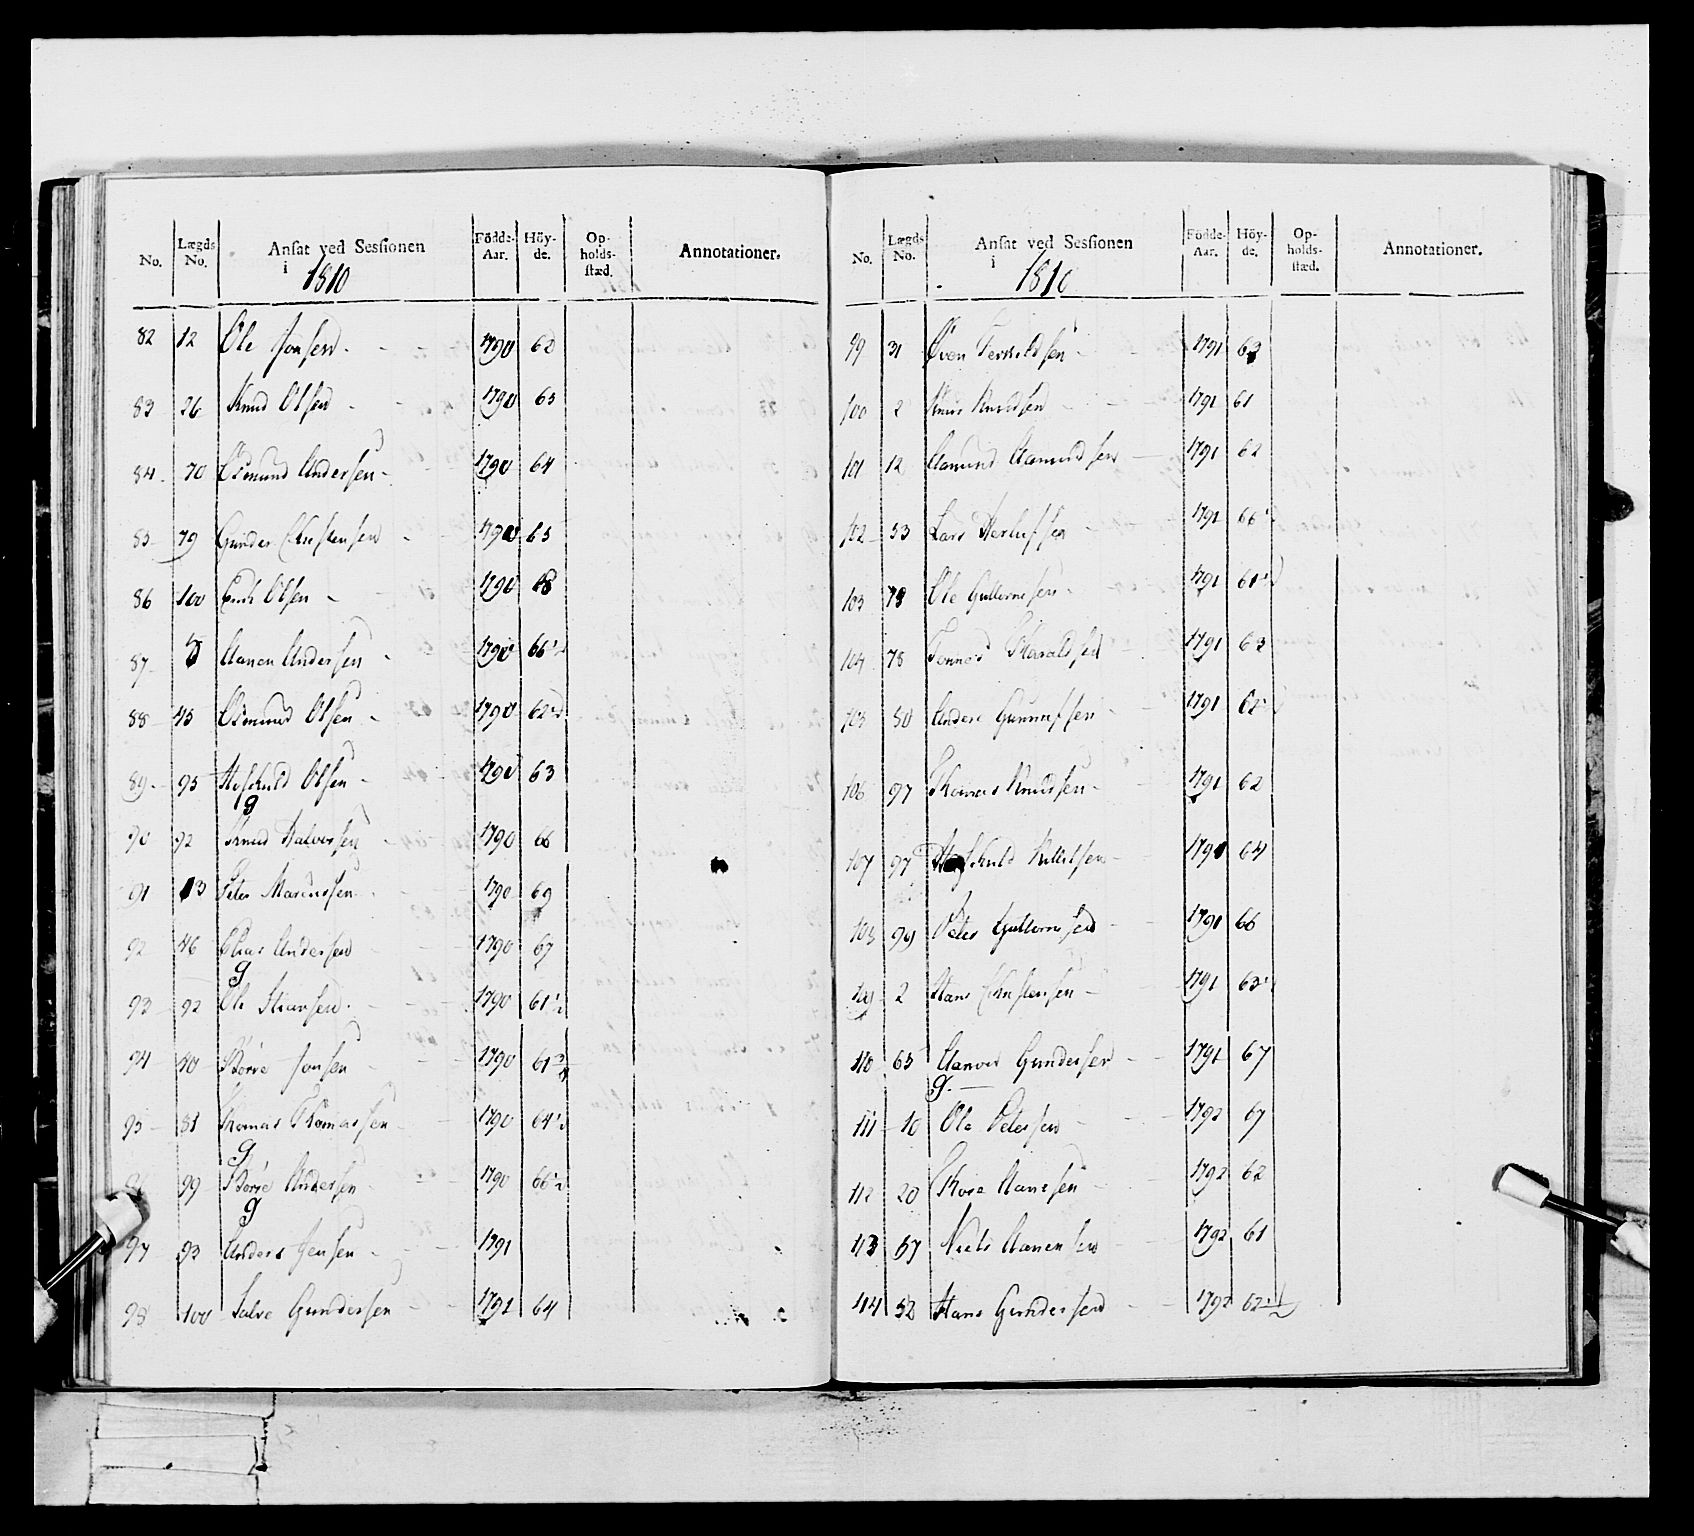 No. Lægds No. Ansat ved Sessionen i 1810 Födde-Aar. Höy-de. Op-holds-stæd. Annotationer.
82 12 Ole Jonsen 1790 62
83 26 Knud Olsen 1790 63
84 70 Osmund Andersen 1790 64
85 79 Gunder Christensen 1790 63
86 100 Erik Olsen 1790
87 Aanen Andersen 1790 66 1/2
88 45 Osmund Olsen 1790 62 1/2
89 95 Hoskuld Olsen 1790 63
g
90 92 Knud Halvorsen 1790 66
91 13 Peder Marcussen 1790 69
92 46 Elias Andersen 1790 67
g
93 92 Ole Stiansen 1790 61 1/2
94 80 Börre Jonsen 1790 61 3/4
95 81 Thomas Thomassen 1790 64 1/2
g
99 Börre Andersen 1790 66 1/2
g
97 93 Anders Jensen 1791
98 100 Salve Gundersen 1791 64
No. Lægds No. Ansat ved Sessionen i 1810 Födde-Aar. Höy-de. Op-holds-stæd. Annotationer.
99 31 Öven Terkildsen 1791 63
100 2 Knud Knudsen 1791 61
101 12 Aanund Aanundsen 1791 62
102 53 Lars Herlufsen 1791 66
103 78 Ole Guttormsen 1791 61
104 78 Tönnes Haraldsen 1791 63
105 80 Anders Gunnufsen 1791 62
106 97 Thomas Knudsen 1791 62
107 97 Hoskuld Killilsen 1791 64
108 99 Peder Guttormsen 1791 66
109 2 Hans Christensen 1791 63
110 65 Aanon Gundersen 1791 67
g.
111 10 Ole Petersen 1792 67
112 20 Tore Aanesen 1792 62
113 57 Niels Aanensen 1792 61
114 52 Hans Gundersen 1792 62 1/2